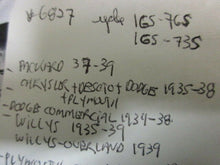 #6827 165-765
165-735
- PACKARD 37-39
- CHRYSLER + DESOTO + DODGE 1935-38
+ PLYMOUTH
- DODGE COMMERCIAL 1934-38
- WILLYS 1935-39
WILLYS-OVERLAND 1939
- PLYMOUTH